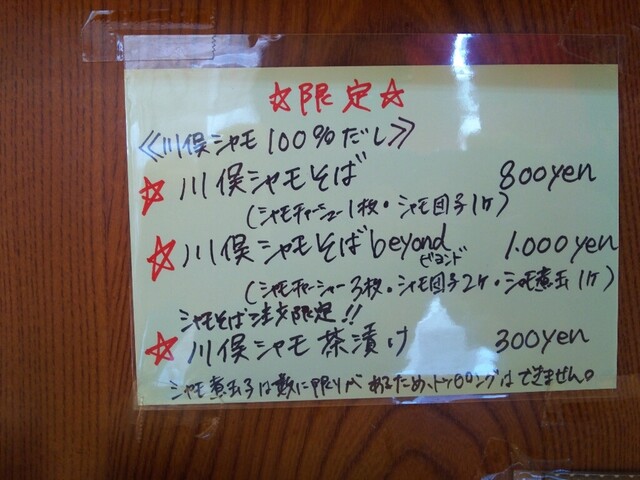 ☆限定☆
≪川俣シャモ100%だし≫
☆川俣シャモそば 800yen
(シャモチャーシュー1枚・シャモ団子1ヶ)
☆川俣シャモそばbeyond 1.000yen
ビヨンド
(シャモチャーシャー3枚・シャモ団子2ヶ・シャモ煮玉1ケ)
シャモそば注文限定!!
☆川俣シャモ茶漬け 300yen
シャモ煮玉子は数に限りがあるため、トッピングはできません。